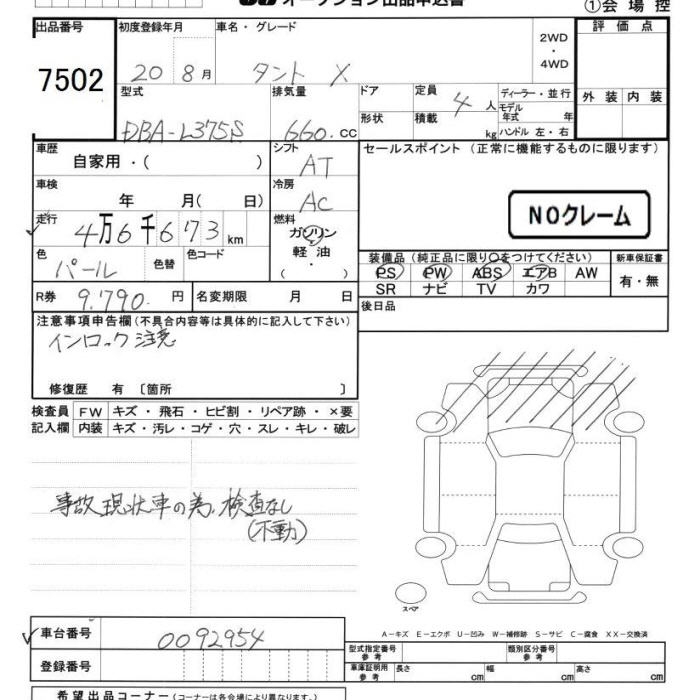 オークション出品申込書
①会場控
出品番号 初度登録年月 車名・グレード 評価点
7502 20 8月 タント X 2WD・4WD
型式 排気量 ドア 定員 4人 ディーラー・並行 外装 内装
DBA-L375S 660.cc 形状 積載 kg モデル年式 年
ハンドル 左・右
車歴 シフト セールスポイント(正常に機能するものに限ります)
自家用・( ) AT
車検 冷房
年 月(日) AC NOクレーム
走行 燃料
4万6千673km ガソリン
軽油
・
色 色替 色コード 装備品(純正品に限り○をつけてください) 新車保証書
パール PS PW ABS エアB AW 有・無
SR ナビ TV カワ
R券 9.790.円 名変期限 月 日 後日品
注意事項申告欄(不具合内容等は具体的に記入して下さい)
インロック注意
修復歴 有〔箇所 〕
検査員 FW キズ・飛石・ヒビ割・リペア跡・×要
記入欄 内装 キズ・汚レ・コゲ・穴・スレ・キレ・破レ
事故現状車の為、検査なし
(不動)
スペア
車台番号 0092954
A-キズ E-エクボ U-凹み W-補修跡 S-サビ C-腐食 XX-交換済
登録番号 型式指定番号 参考 類別区分番号 参考
車庫証明用 参考 長さ cm 幅 cm 高さ cm
希望出品コーナー(コーナーは各会場により異なります。)